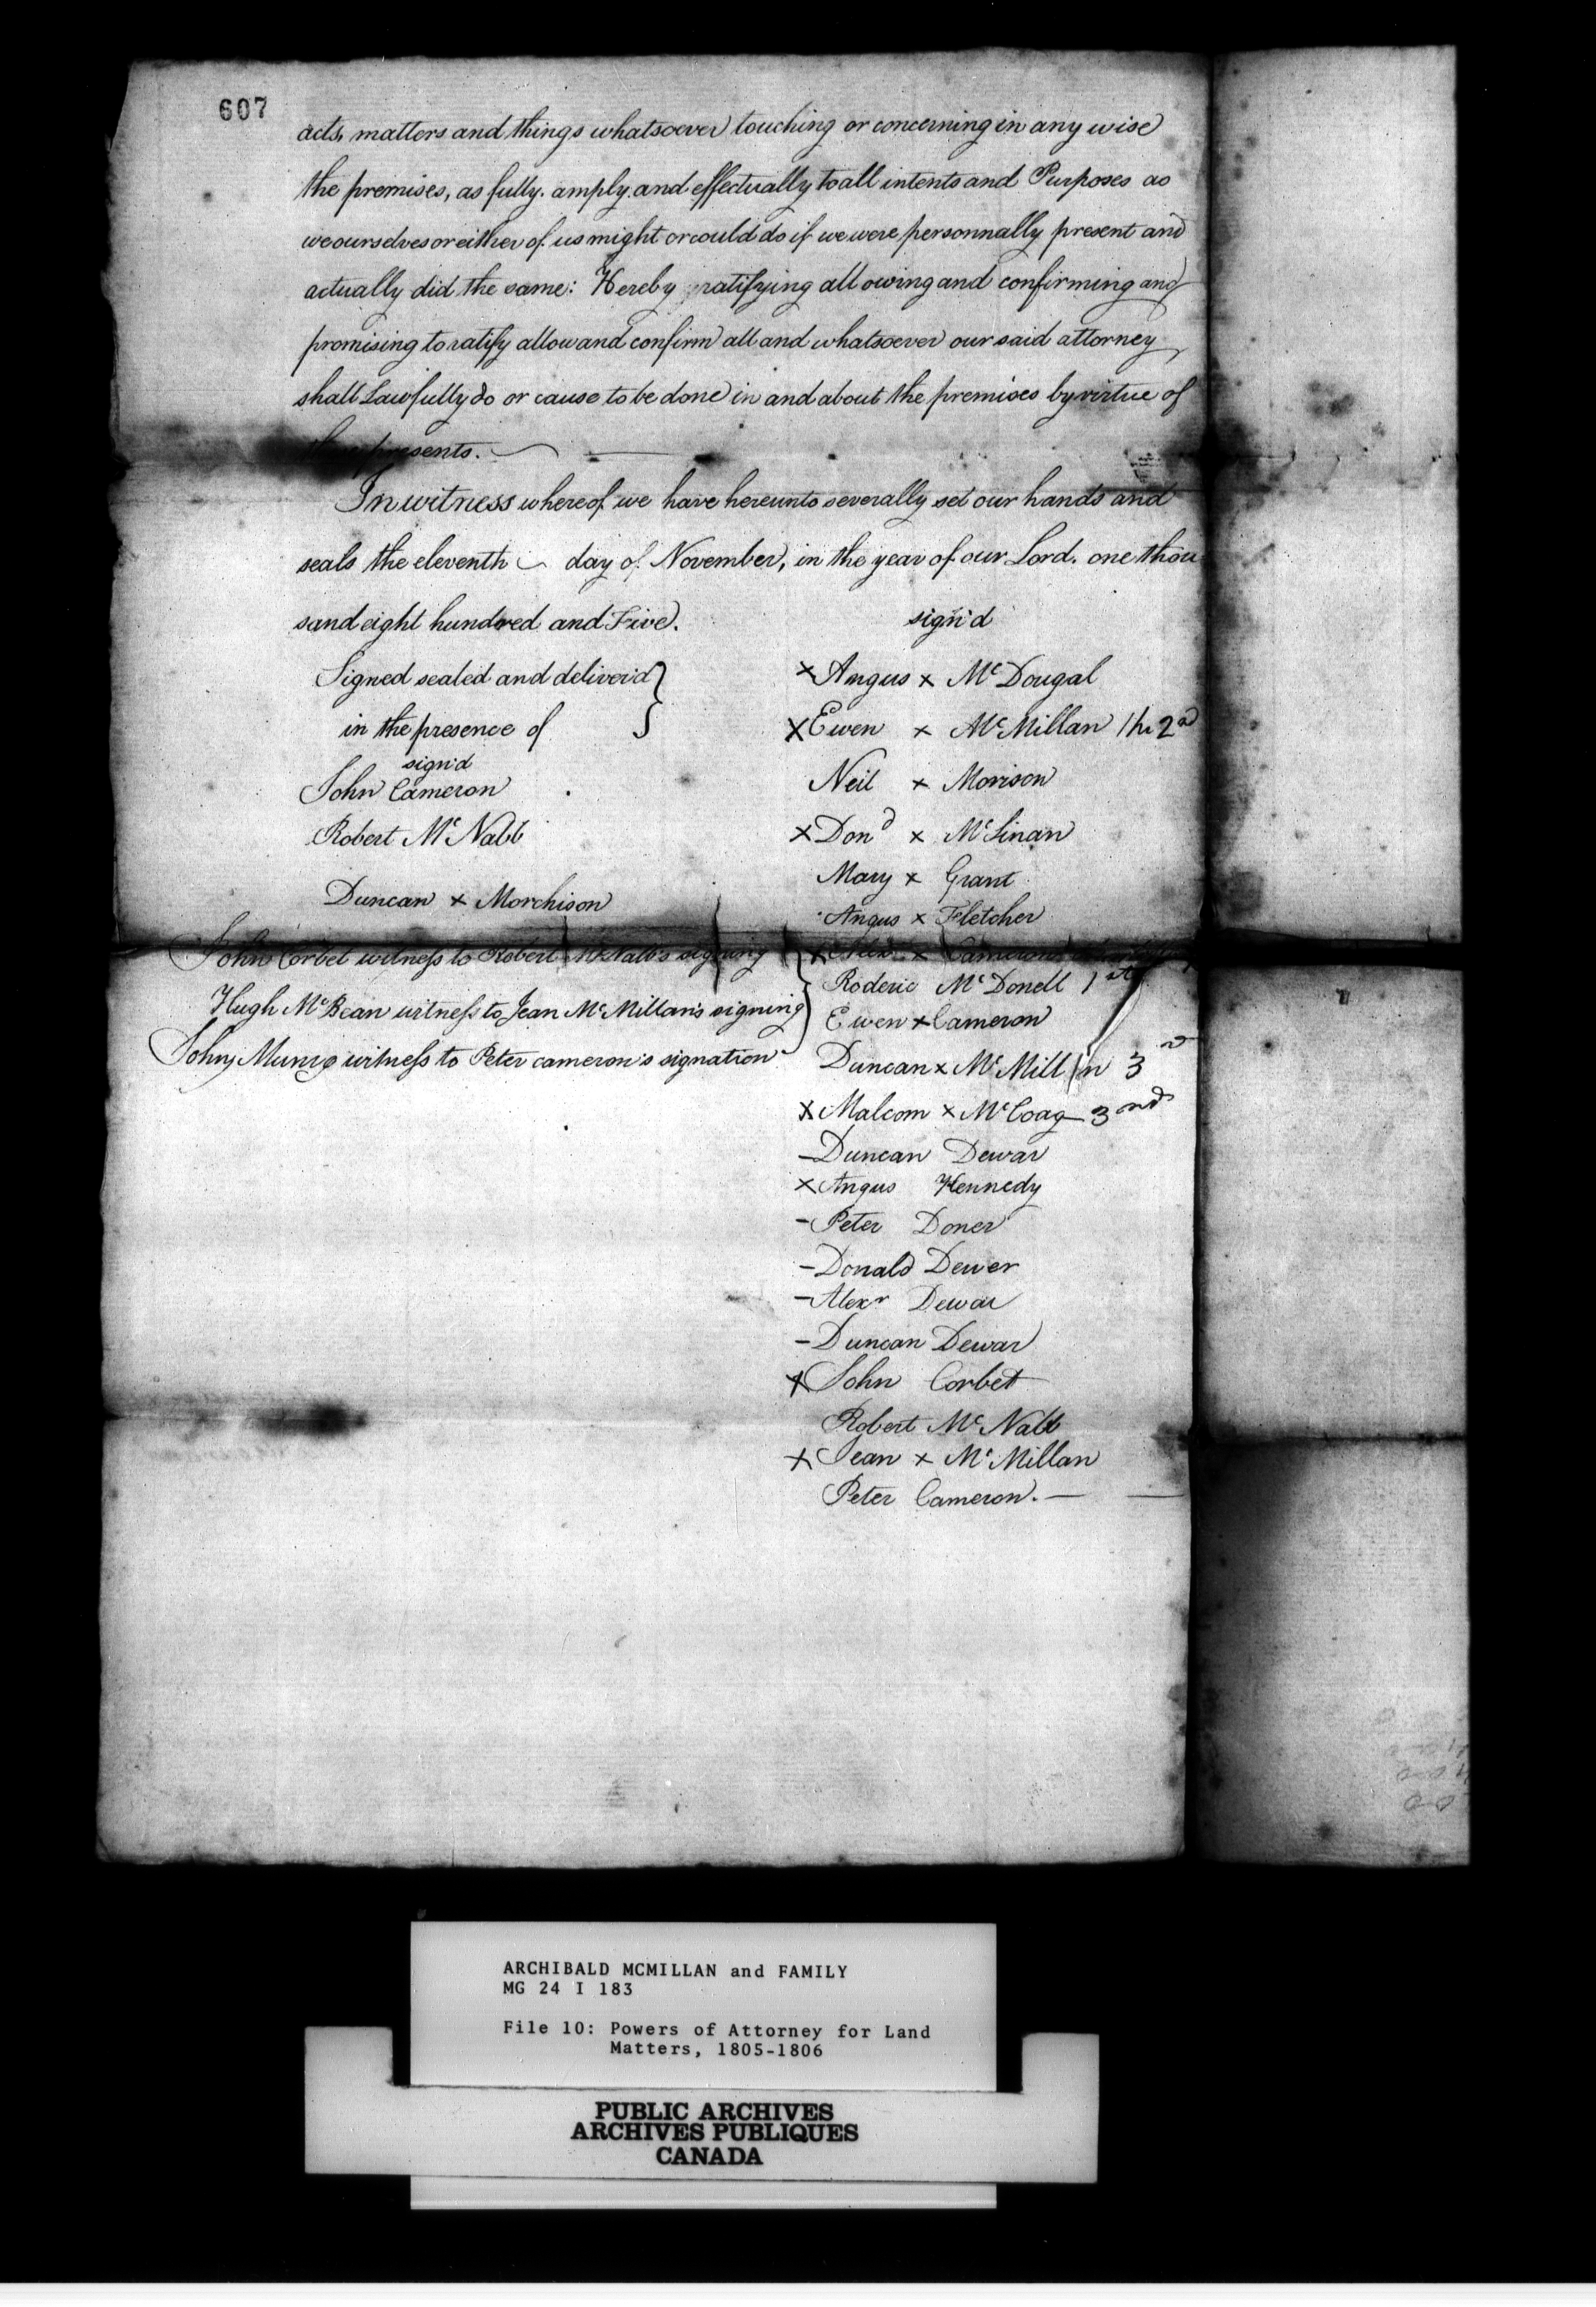 607
acts, matters and things whatsoever touching or concerning in any wise
the premises, as fully. amply. and effectually to all intents and Purposes as
we ourselves or either of us might or could do if we were personnally present and
actually did the same: Hereby ratifying allowing and confirming and
promising to ratify allow and confirm all and whatsoever our said attorney
shall Lawfully do or cause to be done in and about the premises by virtue of
presents.
In witness whereof we have hereunto severally set our hands and
seals the eleventh day of November, in the year of our Lord. one thou
sand eight hundred and Five.
sign'd
Signed sealed and deliver'd
in the presence of
sign'd
John Cameron
Robert McNabb
Duncan x Morchison
John Corbet witness to Robert McNabb's signing
Hugh McBean witness to Jean McMillan's signing
John Munro witness to Peter cameron's signation
x Angus x McDougal
x Ewen x McMillan the 2nd
Neil x Morison
x Dond x McLinan
Mary x Grant
Angus x Fletcher
x Alexr x Cameron
Roderic McDonell 1st
Ewen x Cameron
Duncan x McMillan 3d
x Malcom x McCoag 3nd
- Duncan Dewar
x Angus Kennedy
- Peter Doner
- Donald Dewer
- Alexr Dewar
- Duncan Dewar
x John Corbet
Robert McNabb
x Jean x McMillan
Peter Cameron. —
ARCHIBALD MCMILLAN and FAMILY
MG 24 I 183
File 10: Powers of Attorney for Land
Matters, 1805-1806
PUBLIC ARCHIVES
ARCHIVES PUBLIQUES
CANADA